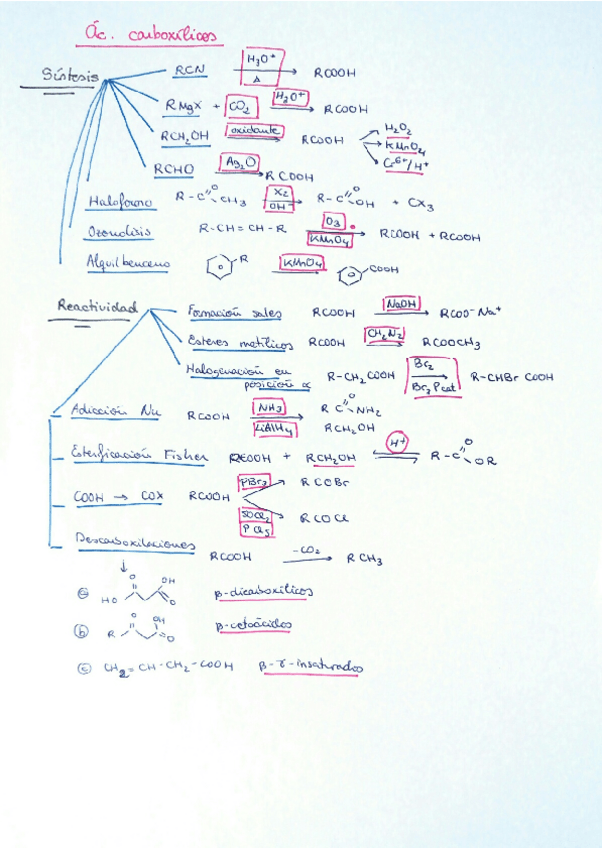 Ác. carboxílicos
Síntesis
RCN H3O+ Δ RCOOH
RMgX + CO2 H3O+ RCOOH
RCH2OH oxidante RCOOH H2O2 KMnO4 Cr6+/H+
RCHO Ag2O RCOOH
Haloformo R-C(=O)CH3 X2 OH- R-C(=O)OH + CX3
Ozonólisis R-CH=CH-R O3 KMnO4 RCOOH + RCOOH
Alquilbenceno R KMnO4 COOH
Reactividad
Formación sales RCOOH NaOH RCOO-Na+
Esteres metílicos RCOOH CH2N2 RCOOCH3
Halogenación en posición α R-CH2COOH Br2 Br2Pcat R-CHBrCOOH
Adicción Nu RCOOH NH3 RC(=O)NH2
LiAlH4 RCH2OH
Esterificación Fisher RCOOH + RCH2OH H+ R-C(=O)OR
COOH → COX RCOOH PBr3 RCOBr
SOCl2 PCl5 RCOCl
Descarboxilaciones RCOOH -CO2 RCH3
a HO O OH O β-dicarboxílicos
b R O OH O β-cetoácidos
c CH2=CH-CH2-COOH β-γ-insaturados